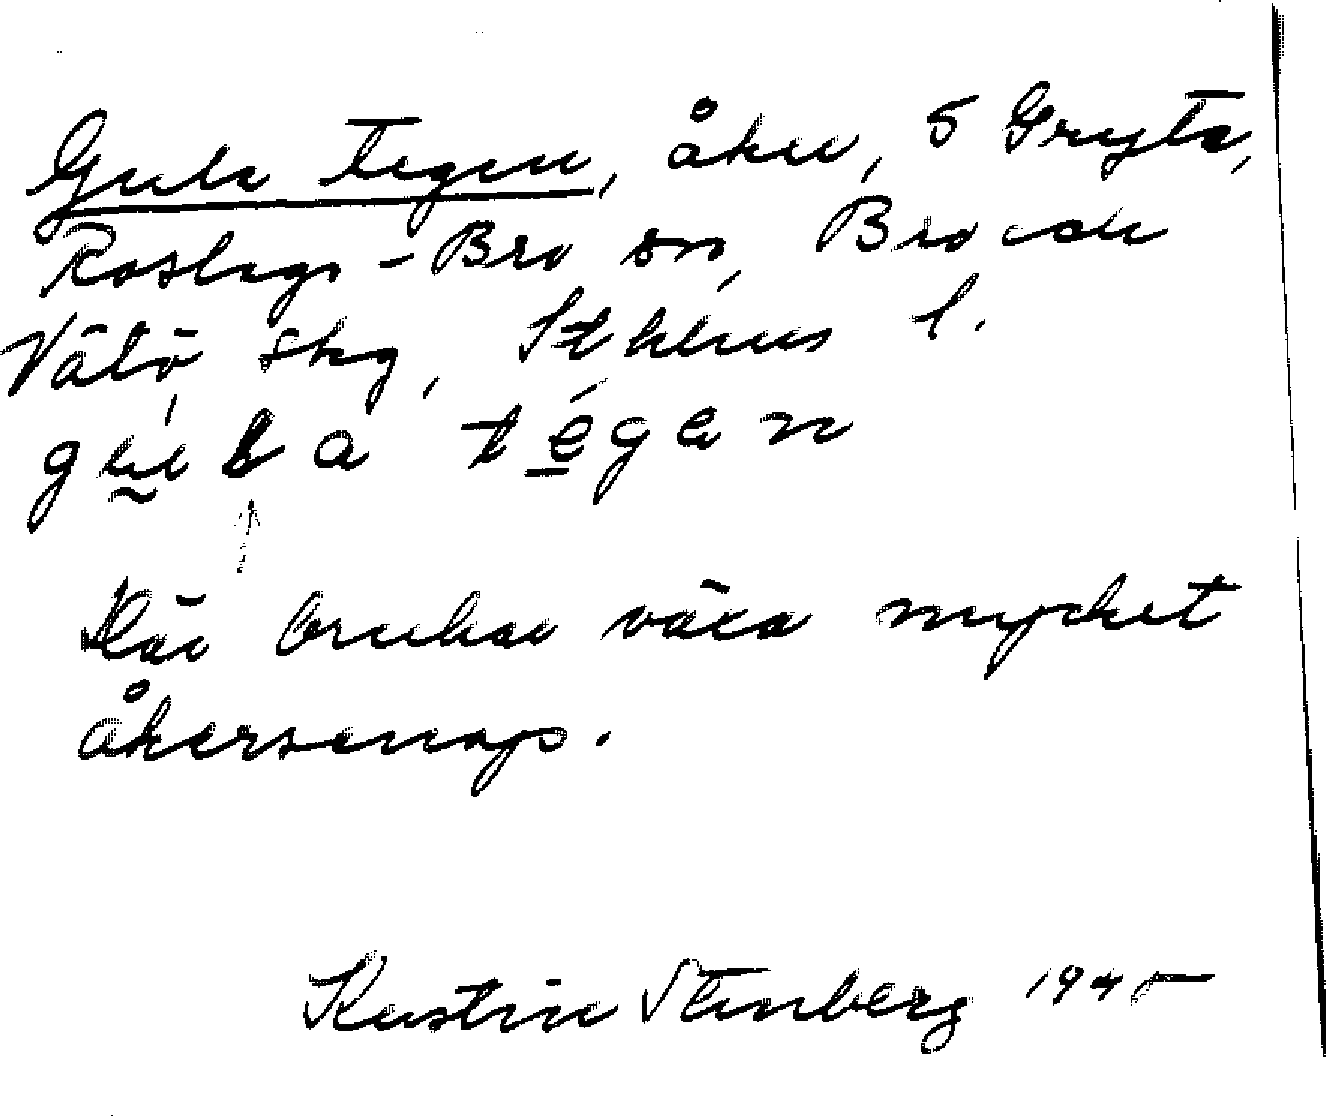 Gula tegen, åker, 5 Gryta,
Roslags-Bro sn, Bro och
Vätö skg, Sthlms l.
gula tegan
Här brukar växa mycket
åkersenap.
Kerstin Stenberg 1945